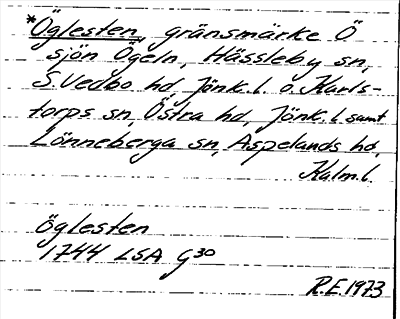 *Öglesten, gränsmärke Ö
sjön Ögeln, Hässleby sn,
S. Vedbo hd, Jönk. l. o. Karls-
torps sn, Östra hd, Jönk. l. samt
Lönneberga sn, Aspelands hd,
Kalm. l.
öglesten
1744 LSA G30
R.E. 1973